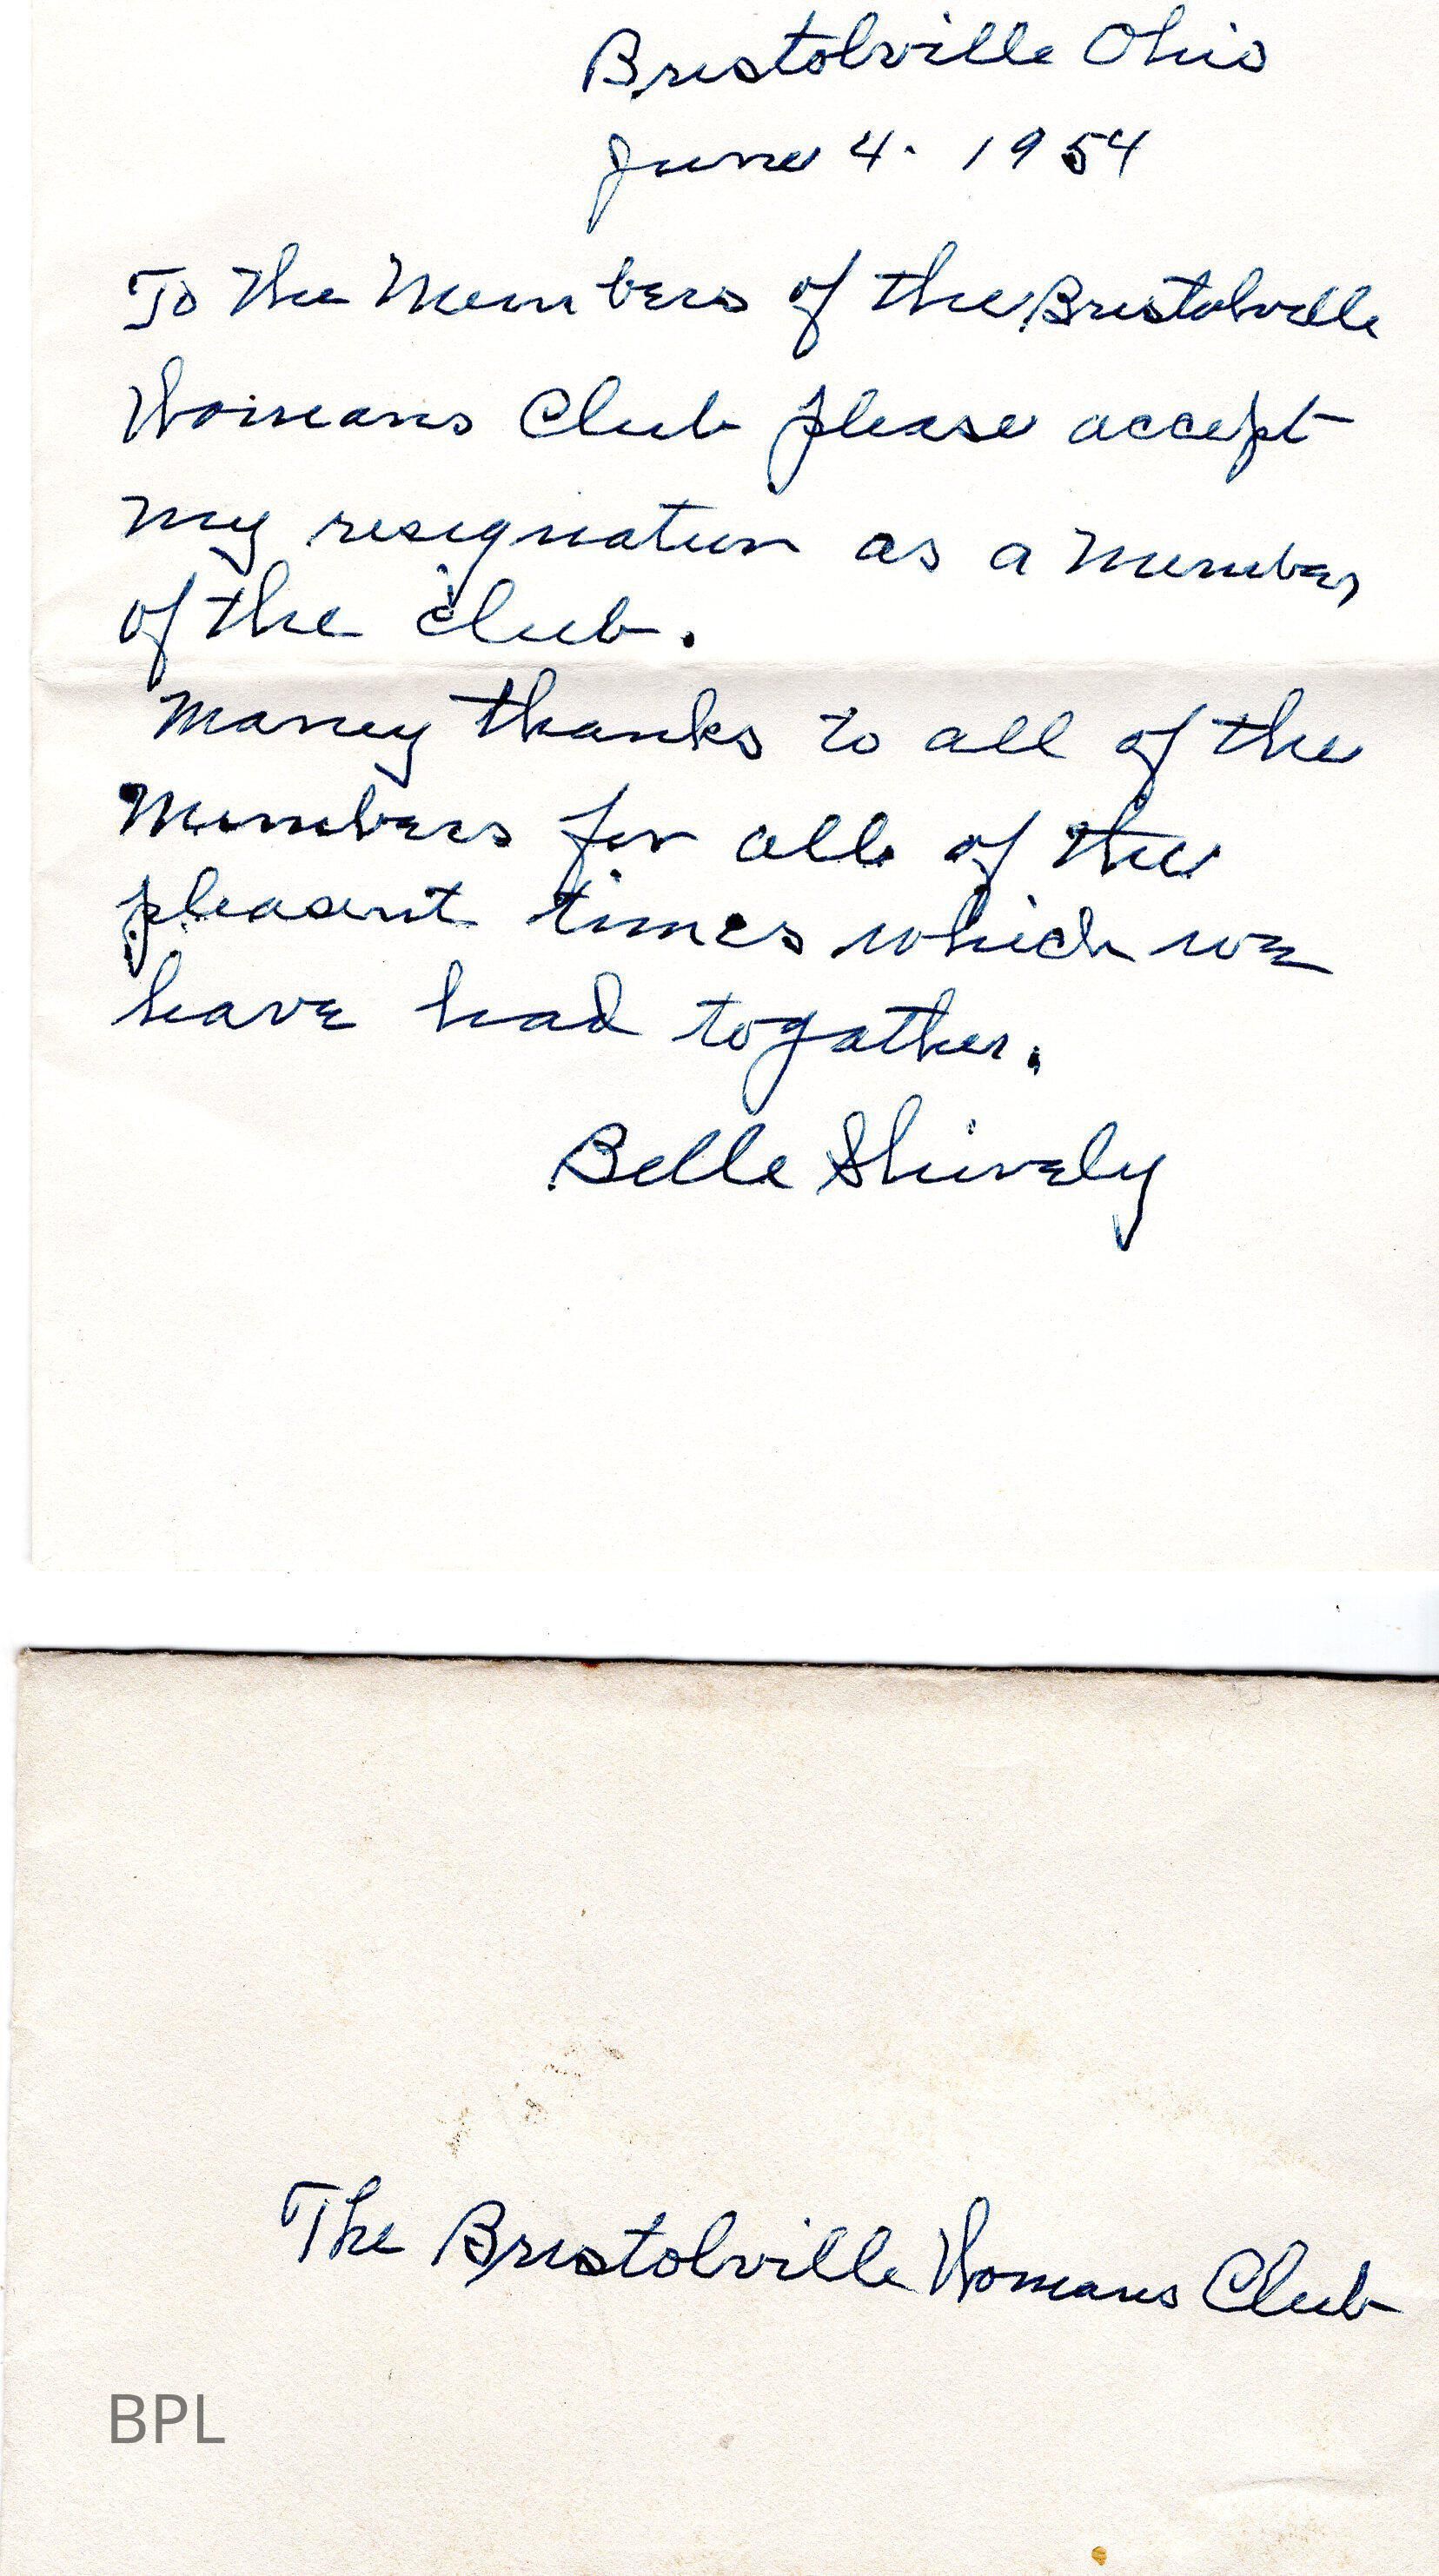 Bristolville Ohio
June 4. 1954
To the Members of the Bristolville
Womans Club please accept
my resignation as a member
of the club.
Many thanks to all of the
Members for all of the
pleasant times which we
have had togather.
Belle Shively
The Bristolville Womans Club
BPL